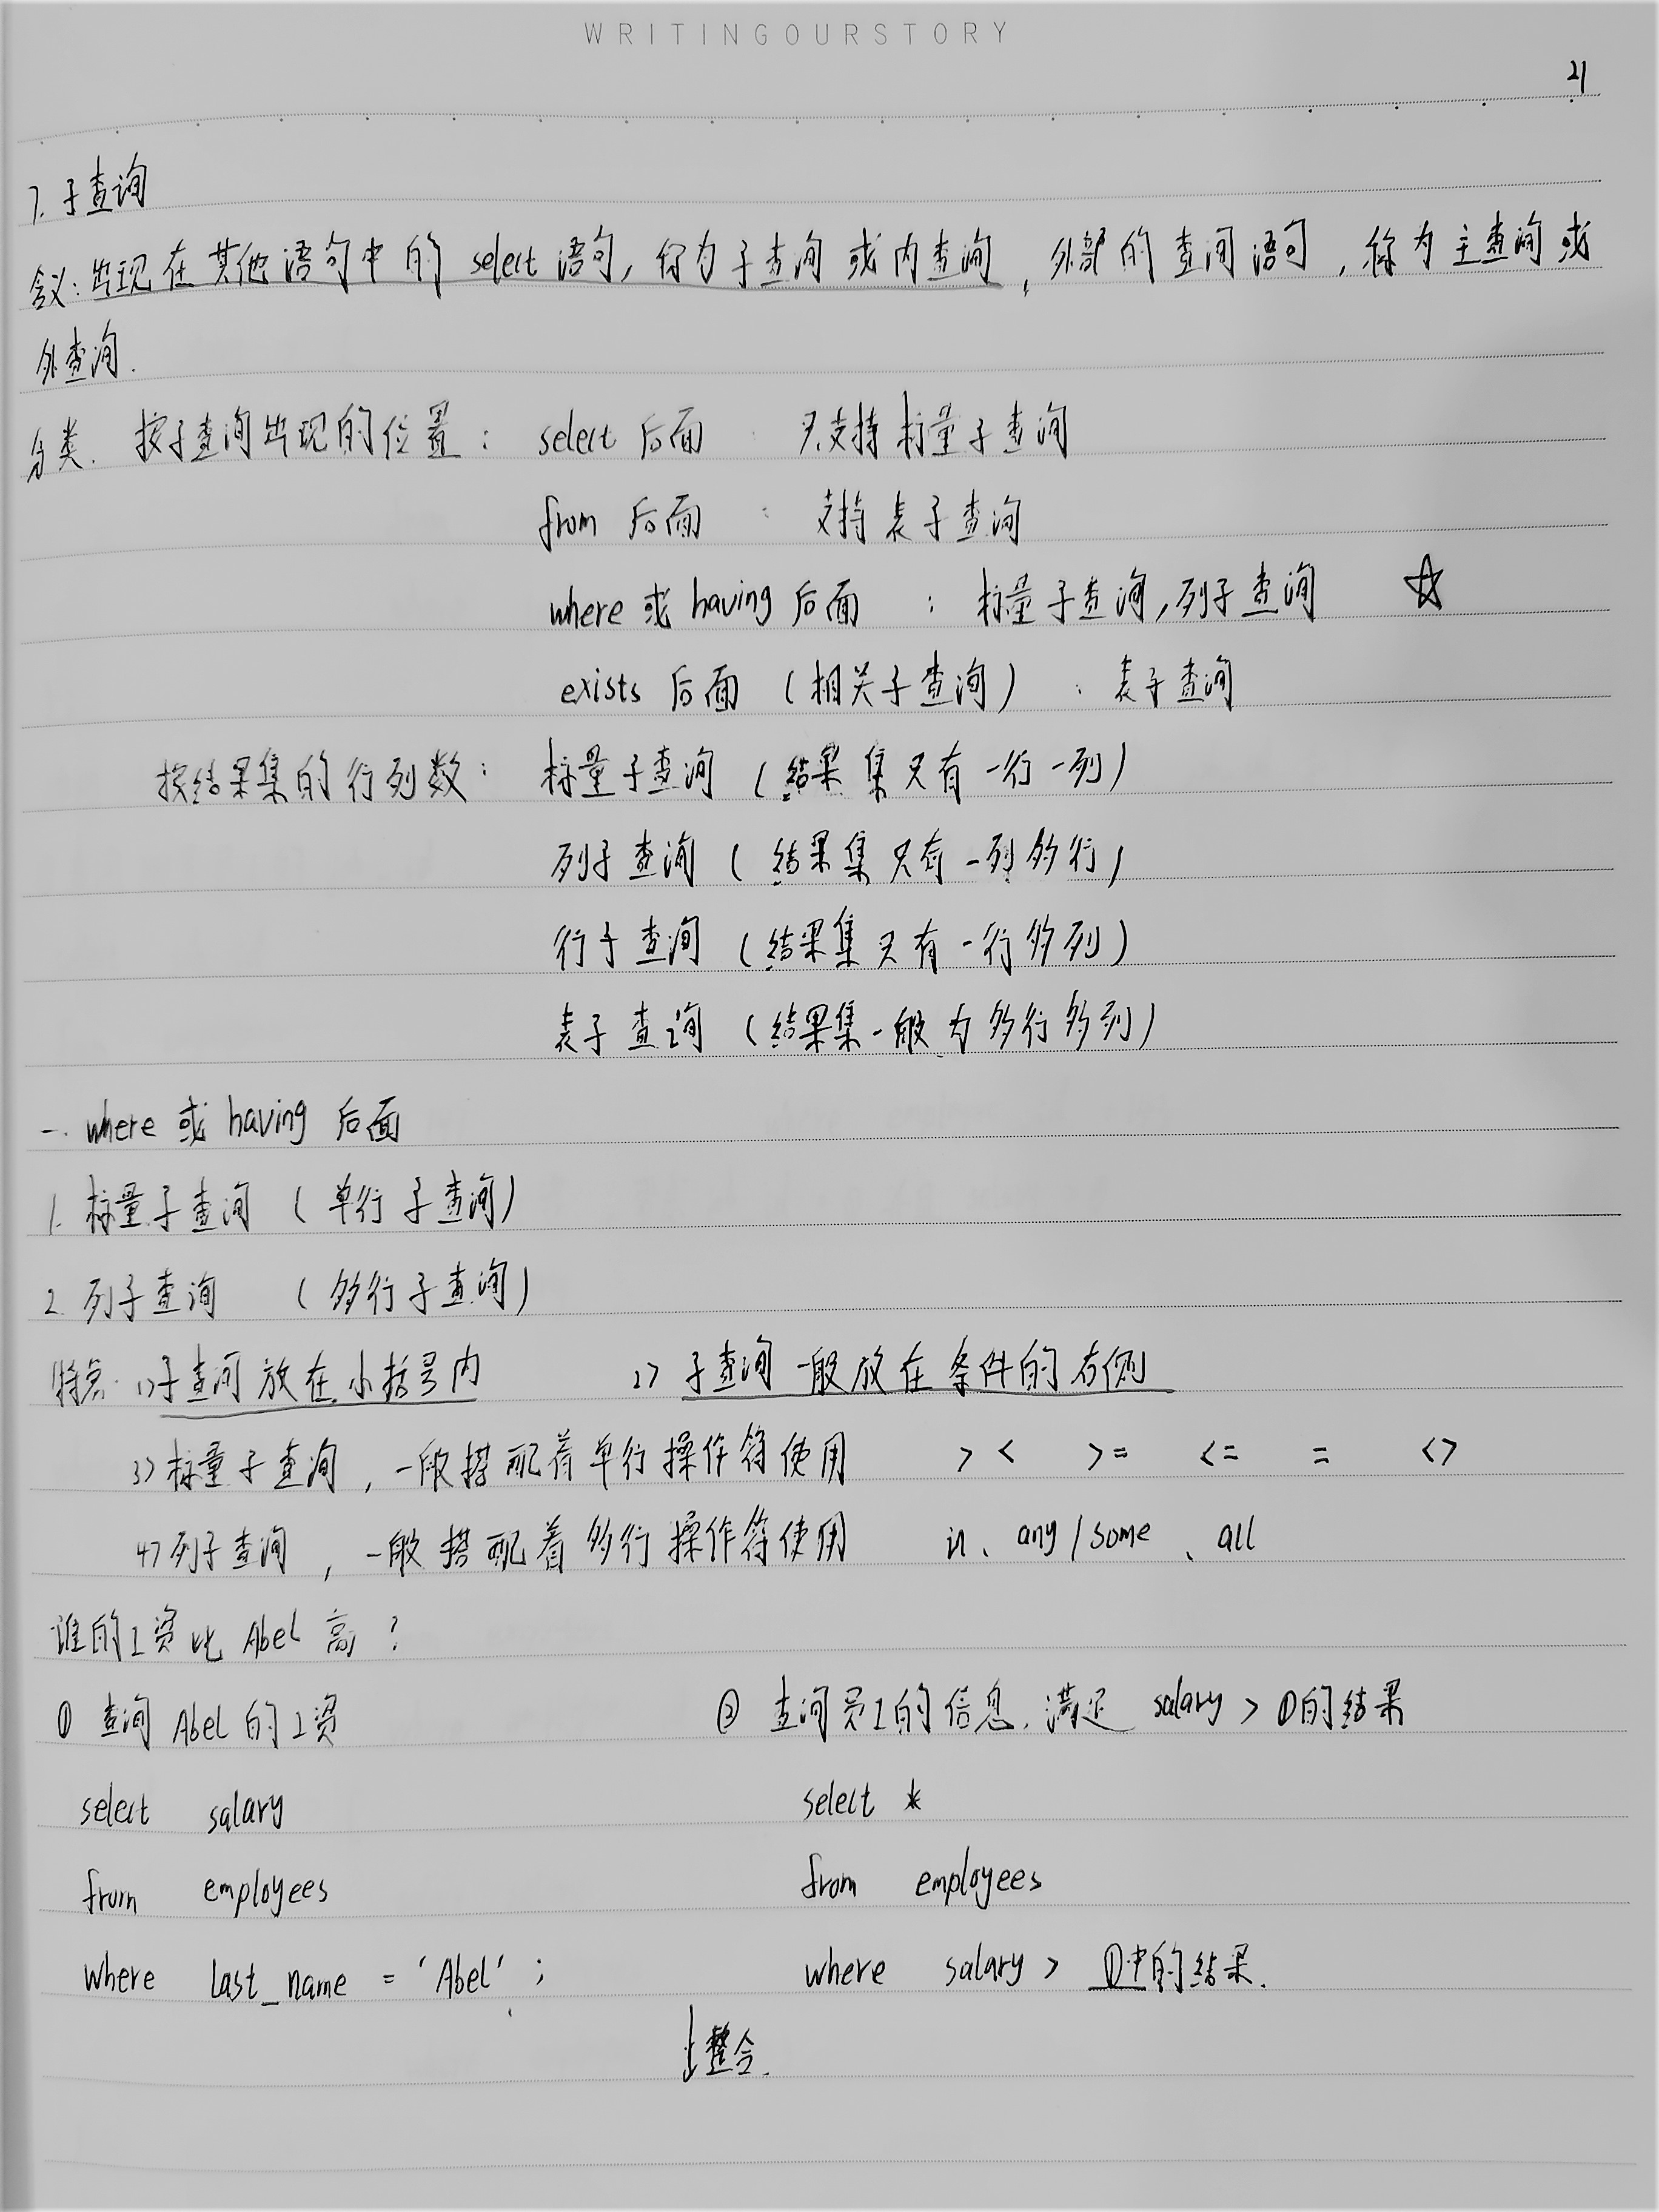 WRITINGOURSTORY
21
7. 子查询
含义：出现在其他语句中的 select 语句, 称为子查询或内查询, 外部的查询语句, 称为主查询或
外查询.
分类. 按子查询出现的位置： select 后面 ： 只支持标量子查询
from 后面 ： 支持表子查询
where 或 having 后面 ： 标量子查询, 列子查询 ☆
exists 后面 (相关子查询) ： 表子查询
按结果集的行列数： 标量子查询 (结果集只有一行一列)
列子查询 (结果集只有一列多行)
行子查询 (结果集只有一行多列)
表子查询 (结果集一般为多行多列)
一. where 或 having 后面
1. 标量子查询 (单行子查询)
2. 列子查询 (多行子查询)
特点. 1> 子查询放在小括号内 2> 子查询一般放在条件的右侧
3> 标量子查询, 一般搭配着单行操作符使用 > < >= <= = <>
4> 列子查询, 一般搭配着多行操作符使用 in、any/some、all
谁的工资比 Abel 高？
① 查询 Abel 的工资 ② 查询员工的信息, 满足 salary > ①的结果
select salary select *
from employees from employees
where last_name = 'Abel'; where salary > ①中的结果.
↓整合.